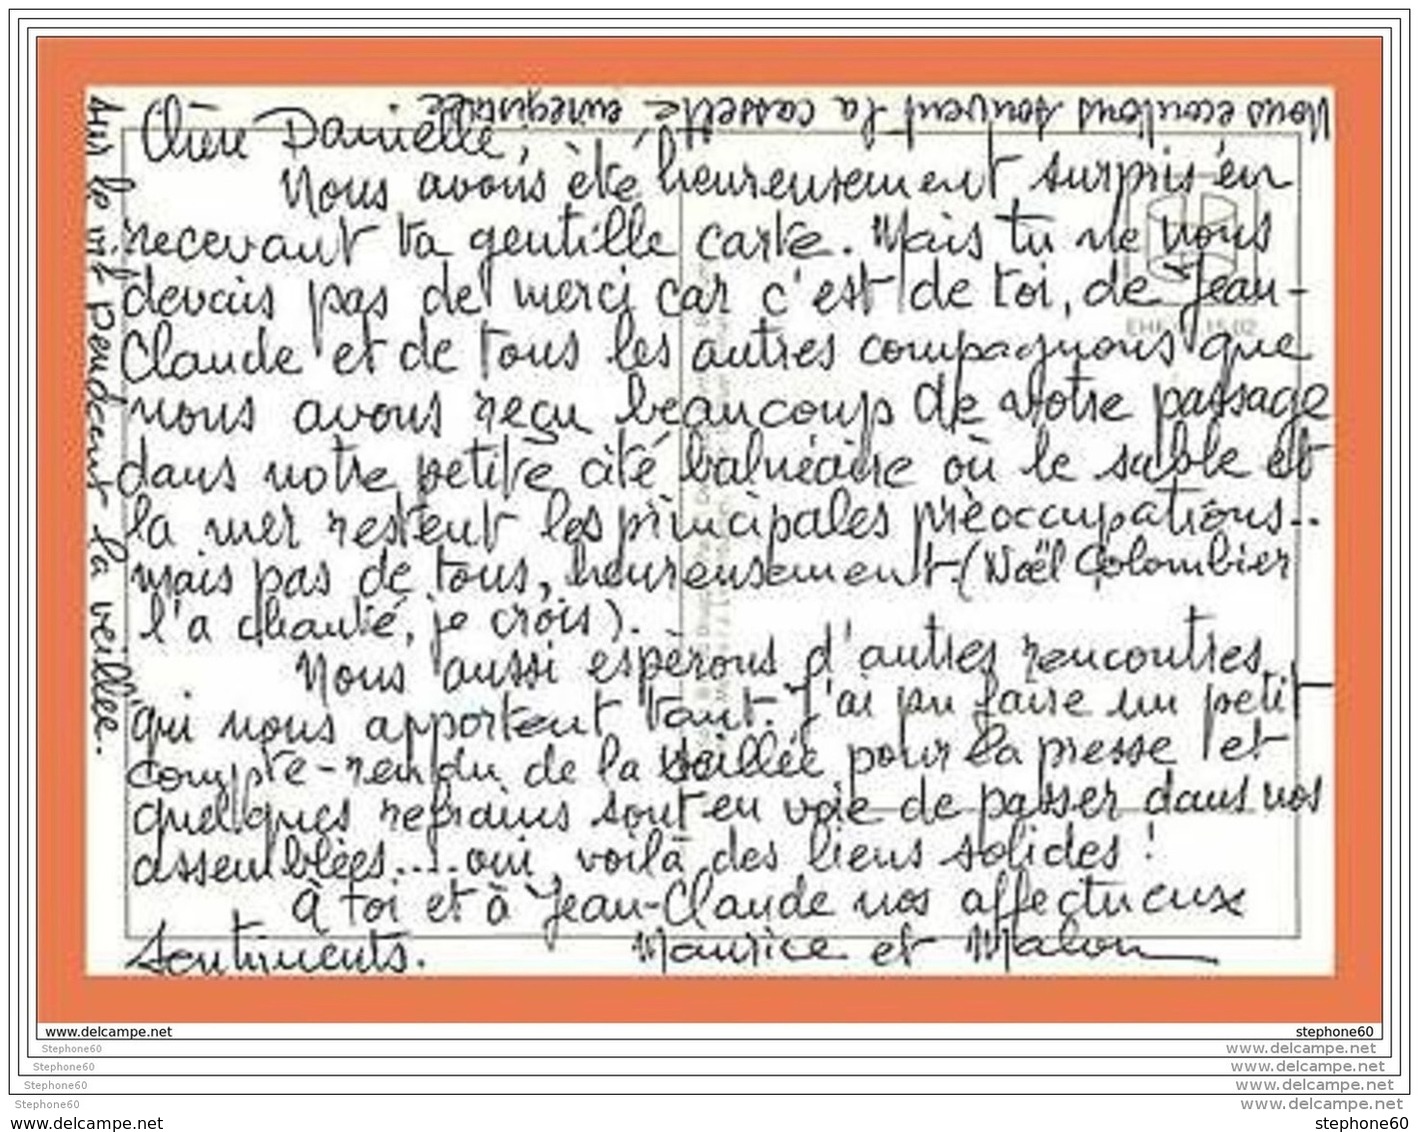 Chère Danielle,
Nous avons été heureusement surpris en
recevant ta gentille carte. Mais tu ne nous
devais pas de merci car c'est de toi, de Jean-
Claude et de tous les autres compagnons que
nous avons reçu beaucoup de votre passage
dans notre petite cité balnéaire où le sable et
la mer restent les principales préoccupations..
mais pas de tous, heureusement (Noël Colombier
l'a chanté, je crois).
Nous aussi espérons d'autres rencontres
qui nous apportent tant. J'ai pu faire un petit
compte-rendu de la veillée pour la presse et
quelques refrains sont en voie de passer dans nos
assemblées.... oui, voilà des liens solides !
À toi et à Jean-Claude nos affectueux
sentiments. Maurice et
Nous écoutons souvent la cassette enregistrée
sur le vif pendant la veillée.
EHF 15.02
www.delcampe.net stephone60
Stephone60 www.delcampe.net
Stephone60 www.delcampe.net
Stephone60 www.delcampe.net
Stephone60 www.delcampe.net
www.delcampe.net stephone60